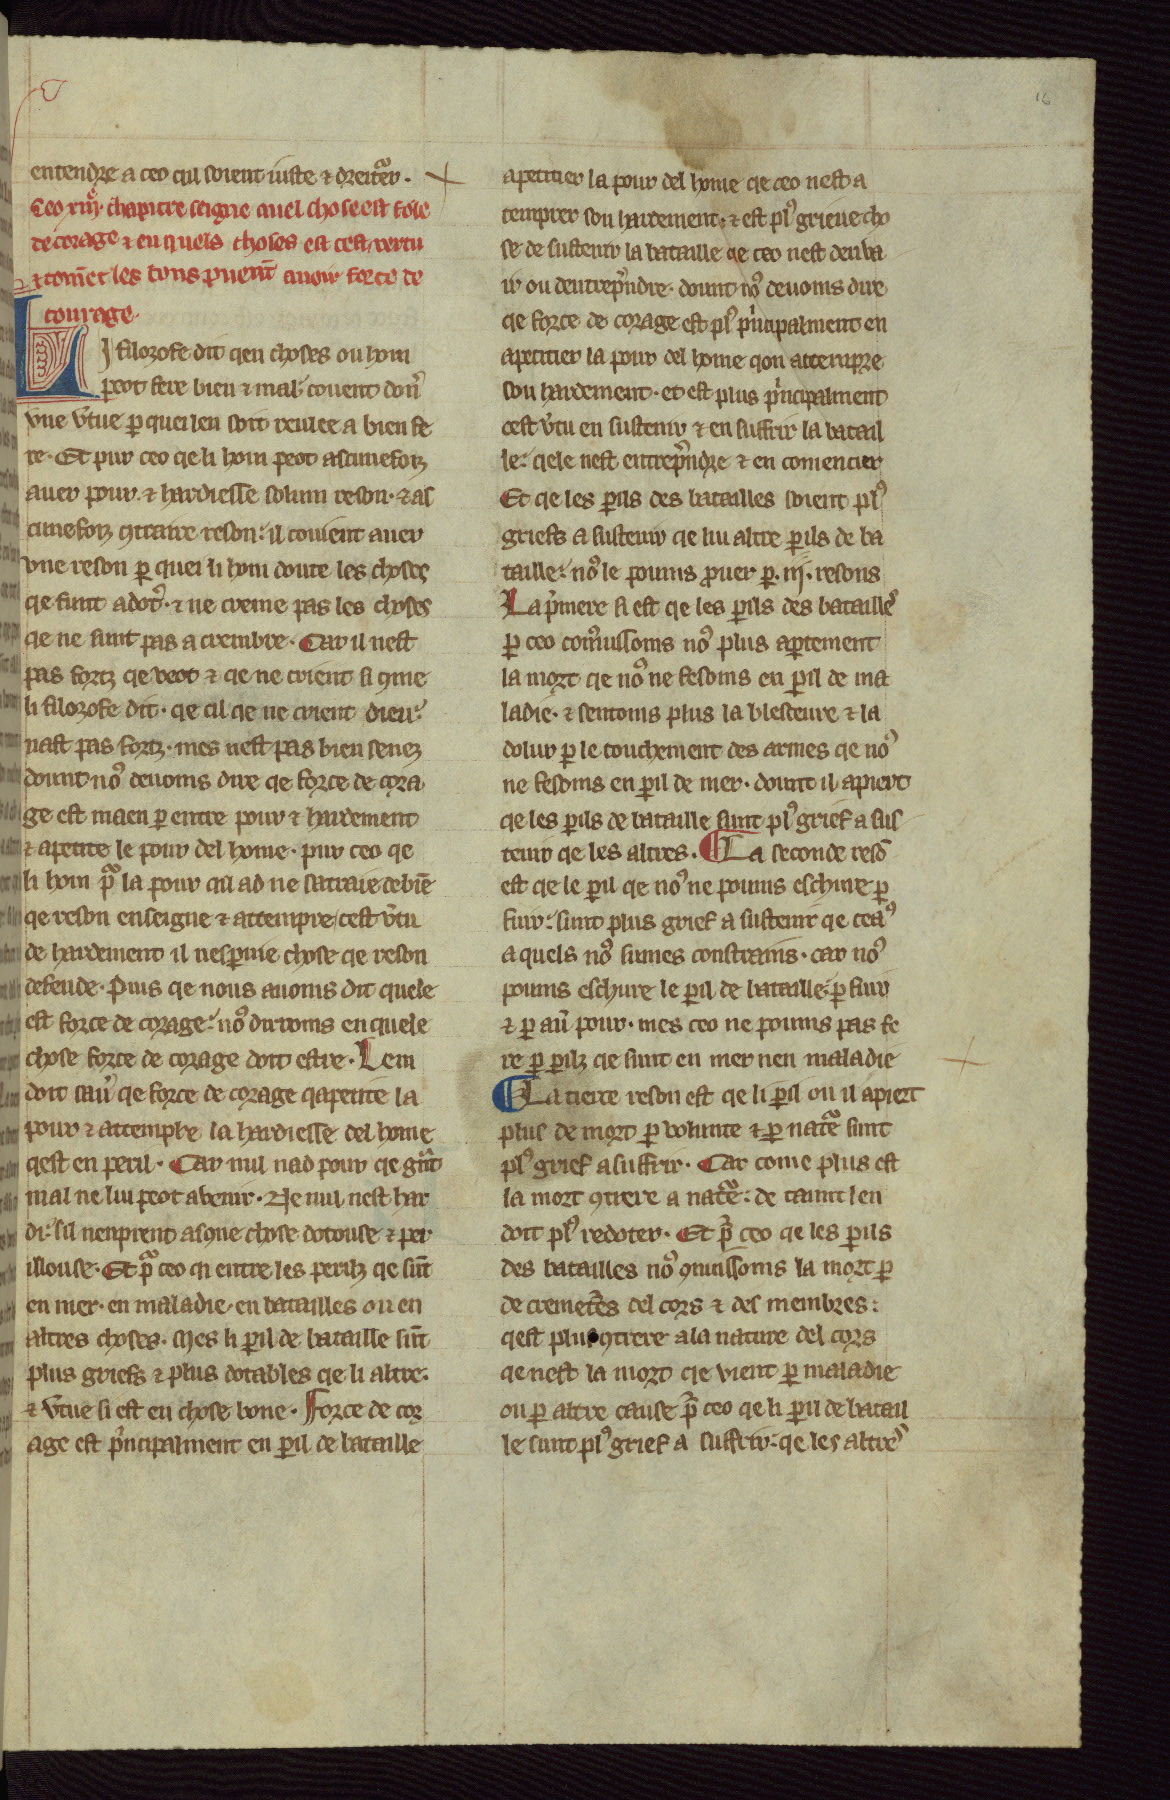 16
entendre a ceo qil soient iuste ⁊ dreitͣer.
Ceo xiiij chapitre seigne quel chose est force
de corage ⁊ en quels choses est cest vertu
⁊ comẽt les bons puent avoir force de
courage.
LI filozofe dit qen choses ou hom
peot fere bien ⁊ mal: covent don̾
vne v̾tue ꝑ quei len soit reulee a bien fe
re. Et pur ceo qe li hom peot ascunefoiz
auer pour ⁊ hardiesse solum reson. ⁊ as
cunefoiz ꝯtraire reson: il covient auer
vne reson ꝑ quei li hom doute les choses
qe sunt a dot̾. ⁊ ne creme pas les choses
qe ne sunt pas a crembre. Car il nest
pas fortz qe veot ⁊ qe ne crient si ꝯme
li filozofe dit. qe cil qe ne crient dieu:
nast pas fortz. mes nest pas bien senez
dount noꝰ devoms dire qe force de cora
ge est maen ꝑ entre pour ⁊ hardement
⁊ apetite le pour del home. pur ceo qe
li hom pͣ la pour qil ad ne satraie de biẽ
qe reson enseigne ⁊ attempre cest v̾tu
de hardement il nesꝑnie chose qe reson
defende. Puis qe nous auoms dit quele
est force de corage: noꝰ dirroms en quele
chose force de corage doit estre. Lem
doit sau̾ qe force de corage qapetite la
pour ⁊ attempre la hardiesse del home
qest en peril. Car nul nad pour qe gͣnt
mal ne lui peot avenir. Ne nul nest har
di: sil nenprent asque chose dotouse ⁊ per
illouse. Et pͣ ceo qi entre les perilz qe sũt
en mer. en maladie. en batailles ou en
altres choses. Mes li ꝑil de bataille sũt
plus griefs ⁊ plus dotables qe li altre:
⁊ v̾tue si est en chose bone. Force de cor
age est pͥncipalment en ꝑil de bataille
apetitier la pour del home qe ceo nest a
temprer son hardement. ⁊ est plꝰ grieue cho
se de sustenir la bataille qe ceo nest denva
ir ou dentrep̾ndre. dount noꝰ devoms dire
qe force de corage est plꝰ pͥncipalment en
apetitier la pour del home qon attempre
son hardement. et est plus pͥncipalment
cest v̾tu en sustenir ⁊ en suffrir la batail
le: qele nest entrep̾ndre ⁊ en comencier
Et qe les ꝑils des batailles soient plꝰ
griefs a sustenir qe lui altre ꝑils de ba
taille: noꝰ le poums ꝓuer ꝑ .iij. resons
La pͥmere si est qe les ꝑils des bataillꝰ
ꝑ ceo conussoms noꝰ plus aꝑtement
la mort qe noꝰ ne fesoms en ꝑil de ma
ladie. ⁊ sentoms plus la blesceure ⁊ la
dolur ꝑ le touchement des armes qe noꝰ
ne fesoms en ꝑil de mer. dount il apiert
qe les ꝑils de bataille sunt plꝰ grief a sus
tenir qe les altres. La seconde resõ
est qe le ꝑil qe noꝰ ne poums eschure ꝑ
fuir: sunt plus grief a sustenir qe ceaꝰ
a quels noꝰ sumes constrains. car noꝰ
poums eschure le ꝑil de bataille: ꝑ fuir
⁊ ꝑ au̾ pour. mes ceo ne poums pas fe
re ꝑ ꝑilz qe sunt en mer nen maladie
La tierce reson est qe li ꝑil ou il apiert
plus de mort ꝑ volunte ⁊ ꝑ natͣe sunt
plꝰ grief a suffrir. Car come plus est
la mort ꝯtrere a natͣe: de taunt len
doit plꝰ redoter. Et pͣ ceo qe les ꝑils
des batailles noꝰ ꝯnussoms la mort ꝑ
de cremetẽs del cors ⁊ des membres:
qest plus ꝯtrere a la nature del cors
qe nest la mort qe vient ꝑ maladie
ou ꝑ altre cause pͣ ceo qe li ꝑil de batail
le sunt plꝰ grief a suffrir: qe les altrꝰ